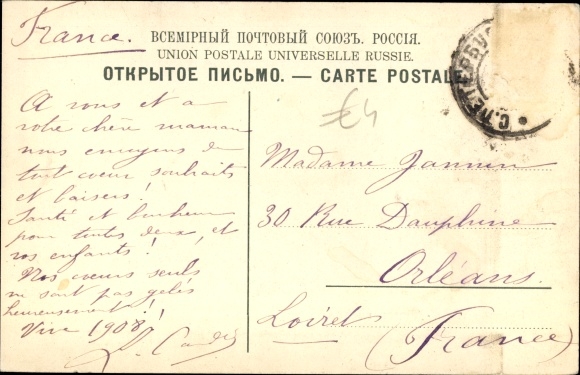 France.
ВСЕМІРНЫЙ ПОЧТОВЫЙ СОЮЗЪ. РОССІЯ.
UNION POSTALE UNIVERSELLE RUSSIE.
ОТКРЫТОЕ ПИСЬМО. — CARTE POSTALE
С.ПЕТЕРБУ
€4
A vous et a
votre chère maman
nous envoyons de
tout coeur souhaits
et baisers!
Santé et bonheur
pour toutes deux, et
vos enfants!
Nos coeurs seuls
ne sont pas gelés
heureusement!
Vive 1908!
Madame Jannin
30 Rue Dauphine
Orléans.
Loiret (France)